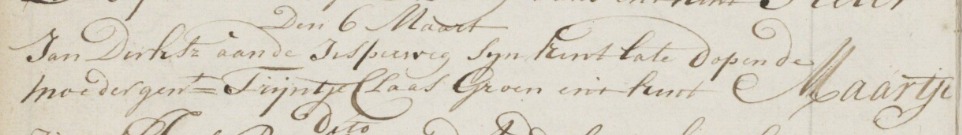 Den 6 Maart
Jan Dirksz aande Jisperweg syn kint late dopen de
moeder gent = Trijntje Claas Groen int kint Maartje
dito